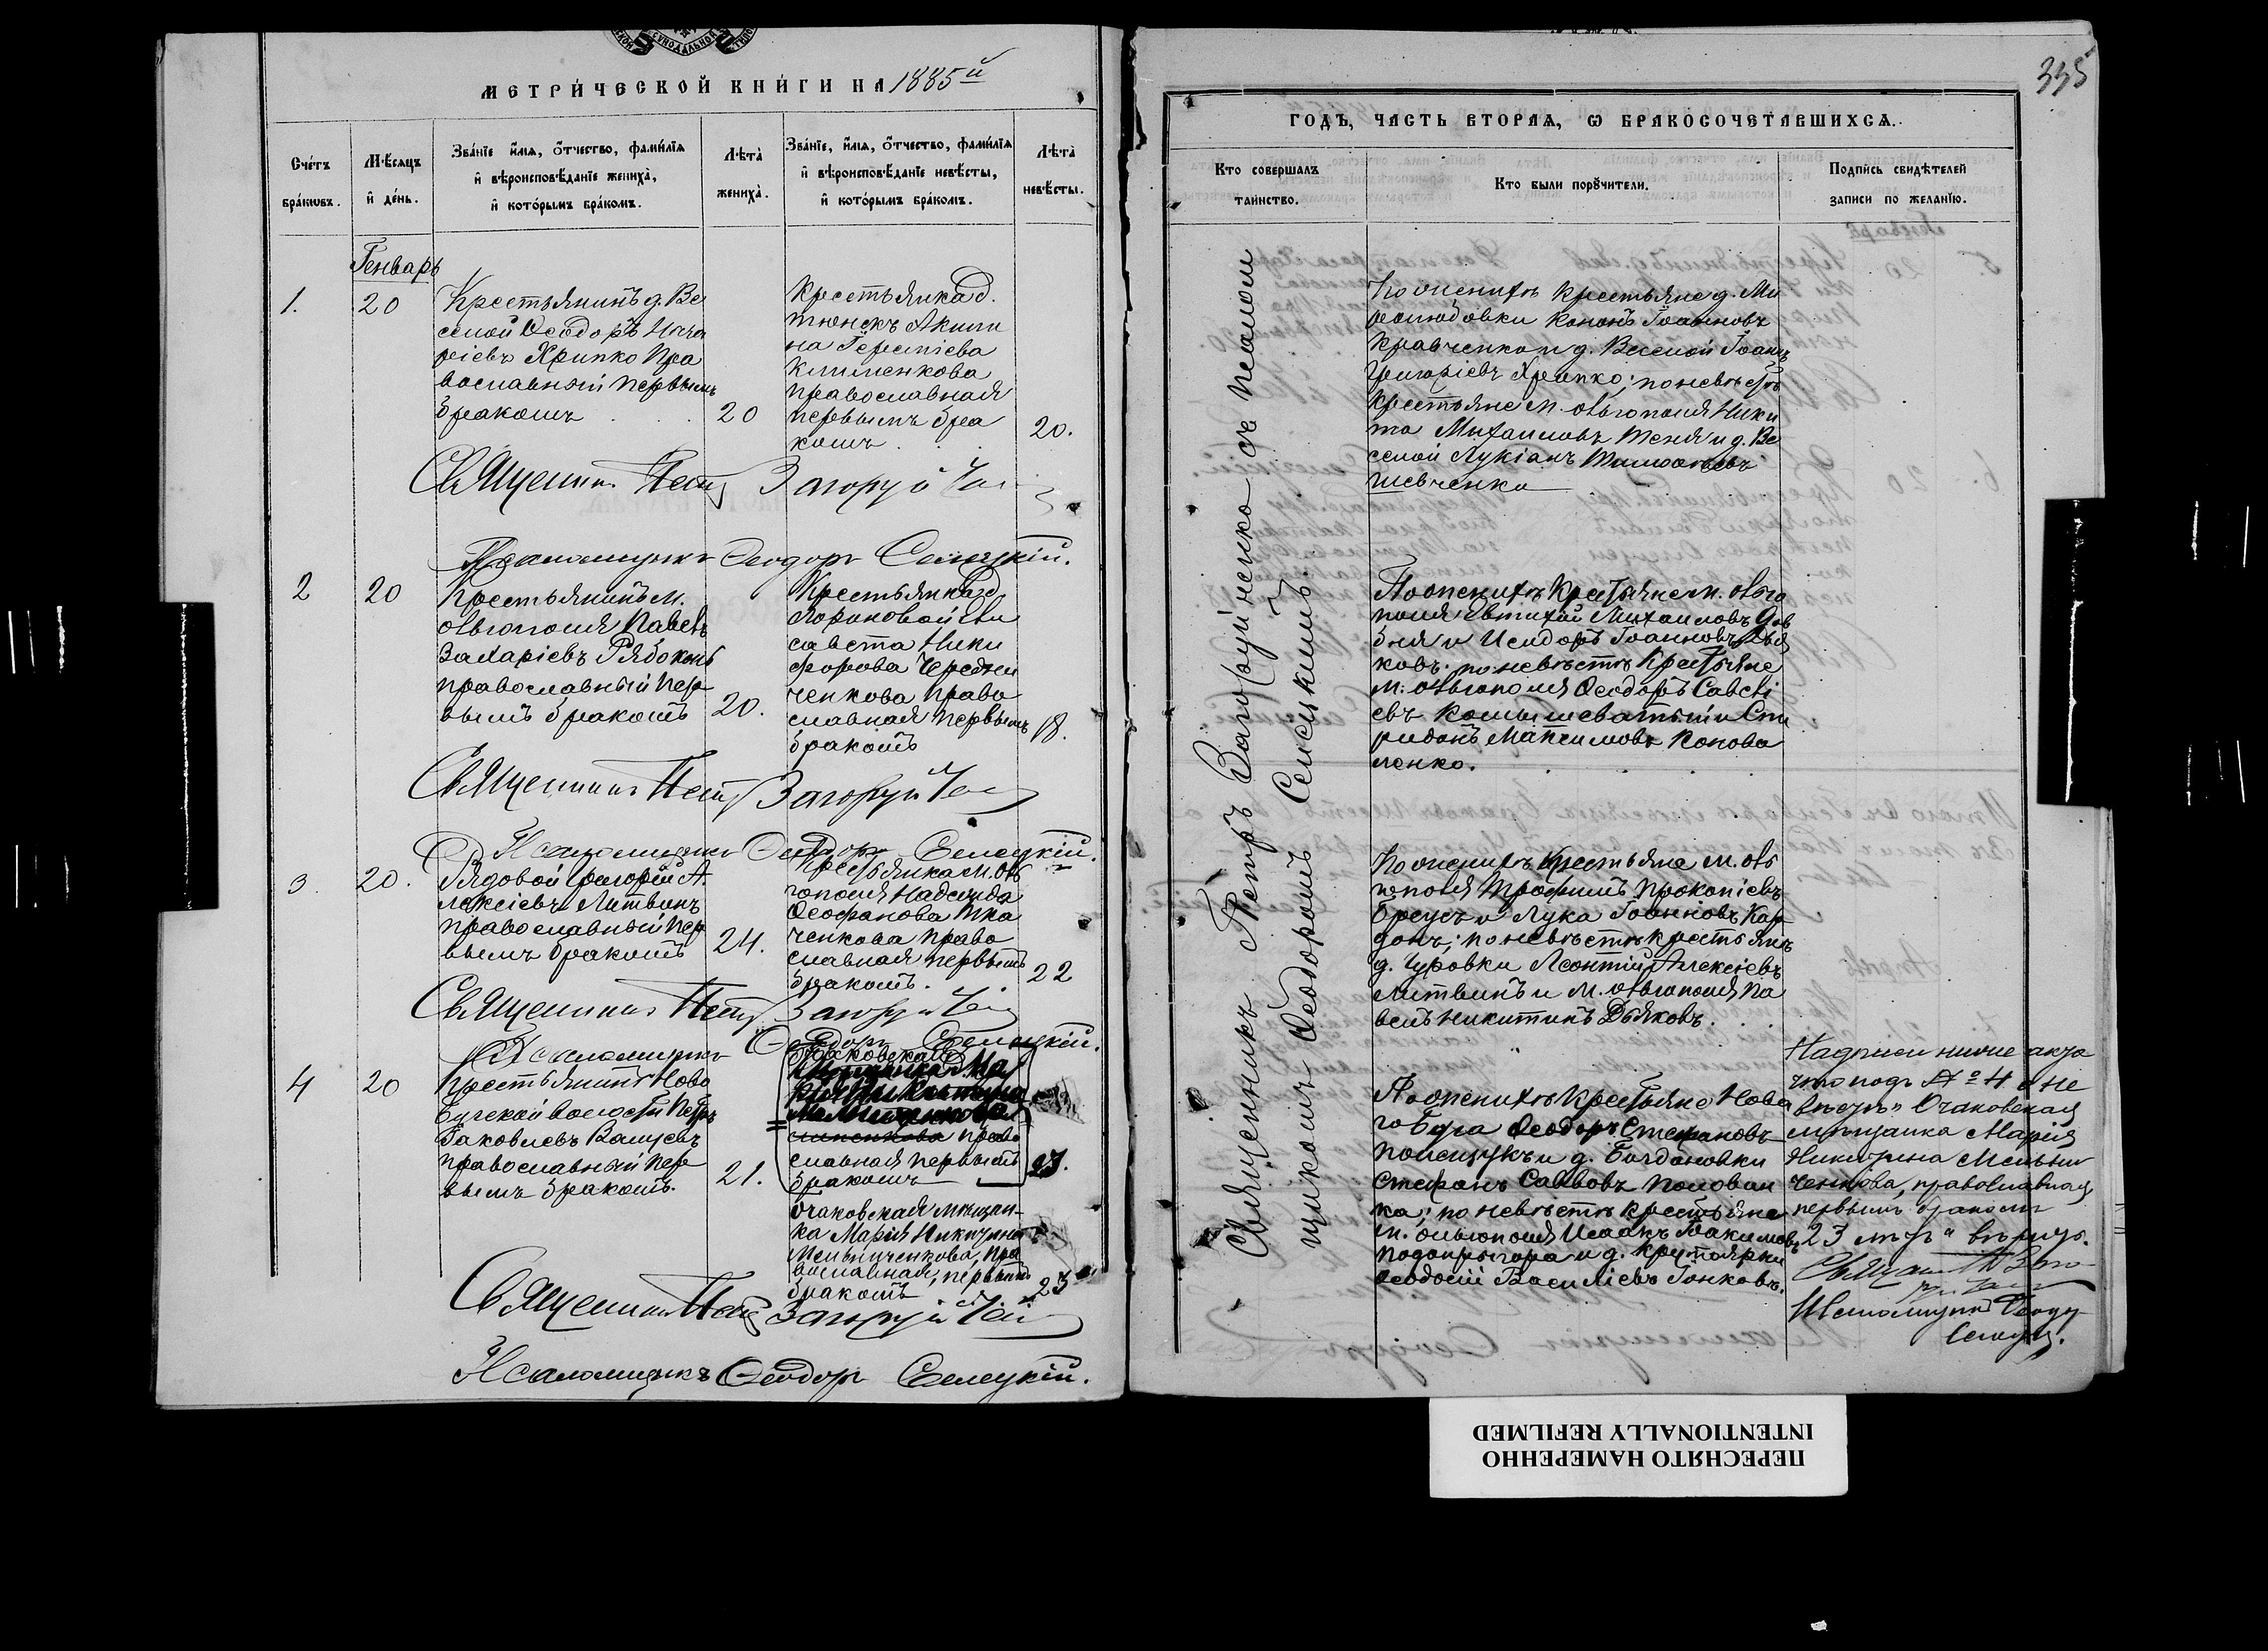 МЕТРИЧЕСКОЙ КНИГИ НА 1885й
Счетъ браковъ.
Мѣсяцъ и день.
Званіе имя, отчество, фамилія и вѣроисповѣданіе жениха, и которымъ бракомъ.
Лѣта жениха.
Званіе, имя, отчество, фамилія и вѣроисповѣданіе невѣсты, и которымъ бракомъ.
Лѣта невѣсты.
Генварь
1.
20
Крестьянинъ д. Ве
селой Ѳеодоръ
Хрипко Пра
вославный первымъ
бракомъ
20
Крестьянка д.
Акили
на Терентіева
Клименкова
православная
первымъ бра
комъ
20.
Священникъ Петръ Загоруйченко
Псаломщикъ Ѳеодоръ Селецкій.
2
20
Крестьянинъ м.
Ольгополя Павелъ
Захаріевъ Рябоконь
православный пер
вымъ бракомъ
20.
Крестьянка д.
Ели
савета Ники
форова Чередни
ченкова право
славная первымъ
бракомъ
18.
Священникъ Петръ Загоруйченко
Псаломщикъ Ѳеодоръ Селецкій.
3.
20.
Рядовой Григорій А
лексіевъ Литвинъ
православный пер
вымъ бракомъ
24.
Крестьянка м. Оль
гополя Надежда
Ѳеофанова Тка
ченкова право
славная первымъ
бракомъ.
22
Священникъ Петръ Загоруйченко
Псаломщикъ Ѳеодоръ Селецкій.
4
20
Крестьянинъ Ново
бугской волости Петръ
Іаковлевъ
православный пер
вымъ бракомъ.
21.
право
славная первымъ
бракомъ
Очаковская мѣщан-
ка Марія Никитина
Мельниченкова, пра
вославная, первымъ
бракомъ
23
Священникъ Петръ Загоруйченко
Псаломщикъ Ѳеодоръ Селецкій.
335
ГОДЪ, ЧАСТЬ ВТОРАЯ, Ѡ БРАКОСОЧЕТАВШИХСЯ.
Кто совершалъ таинство.
Кто были поручители.
Подпись свидѣтелей записи по желанію.
Священникъ Петръ Загоруйченко съ псалом
щикомъ Ѳеодоромъ Селецкимъ.
По женихѣ крестьяне д. Ми
ролюбовки Кононъ Іоанновъ
Кравченко и д. Веселой Іоаннъ
Григоріевъ Хрипко; по невѣстѣ
крестьяне м. Ольгополя Ники
та Михаиловъ и д. Ве
селой Лукіанъ Тимоѳеевъ
Шевченко
По женихѣ крестьяне м. Ольго
поля Евтихій Михаиловъ Дов
бня и Исидоръ Іоанновъ Дья
ковъ; по невѣстѣ крестьяне
м. Ольгополя Ѳеодоръ Савелі
евъ Комышеватый и Спи
ридонъ Максимовъ Конова
ленко.
По женихѣ крестьяне м. Оль
гополя Трофимъ Прокопіевъ
Бреусъ и Лука Іоанновъ Кар
донъ; по невѣстѣ крестьяне
д. Гуровки Леонтій Алексіевъ
Литвинъ и м. Ольгополя Па
велъ Никитинъ Дьяковъ.
По женихѣ крестьяне Нова
го Буга Ѳеодоръ Стефановъ
Полещукъ и д. Богдановки
Стефанъ Савовъ Половин
ка; по невѣстѣ крестьяне
м. Ольгополя Исаакъ Іоакимовъ
Подопригора и д. Крутоярки
Ѳеодосій Василіевъ Гонковъ.
что подъ № 4
Очаковская
мѣщанка Марія
Никитина Мельни
ченкова, православная
первымъ бракомъ
23 лѣтъ вѣрить.
Псаломщикъ Ѳеодоръ
Селецкій.
ПЕРЕСНЯТО НАМЕРЕННО
INTENTIONALLY REFILMED